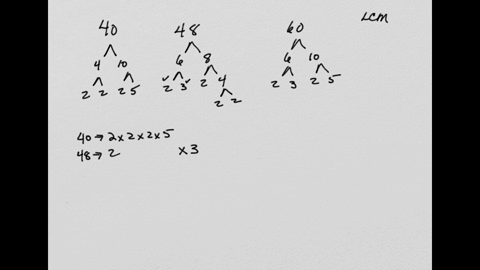 LCM
40 48 60
4 10 6 8 6 10
2 2 2 5 2 3 2 4 2 3 2 5
2 2
40 → 2 x 2 x 2 x 5
48 → 2 x 3